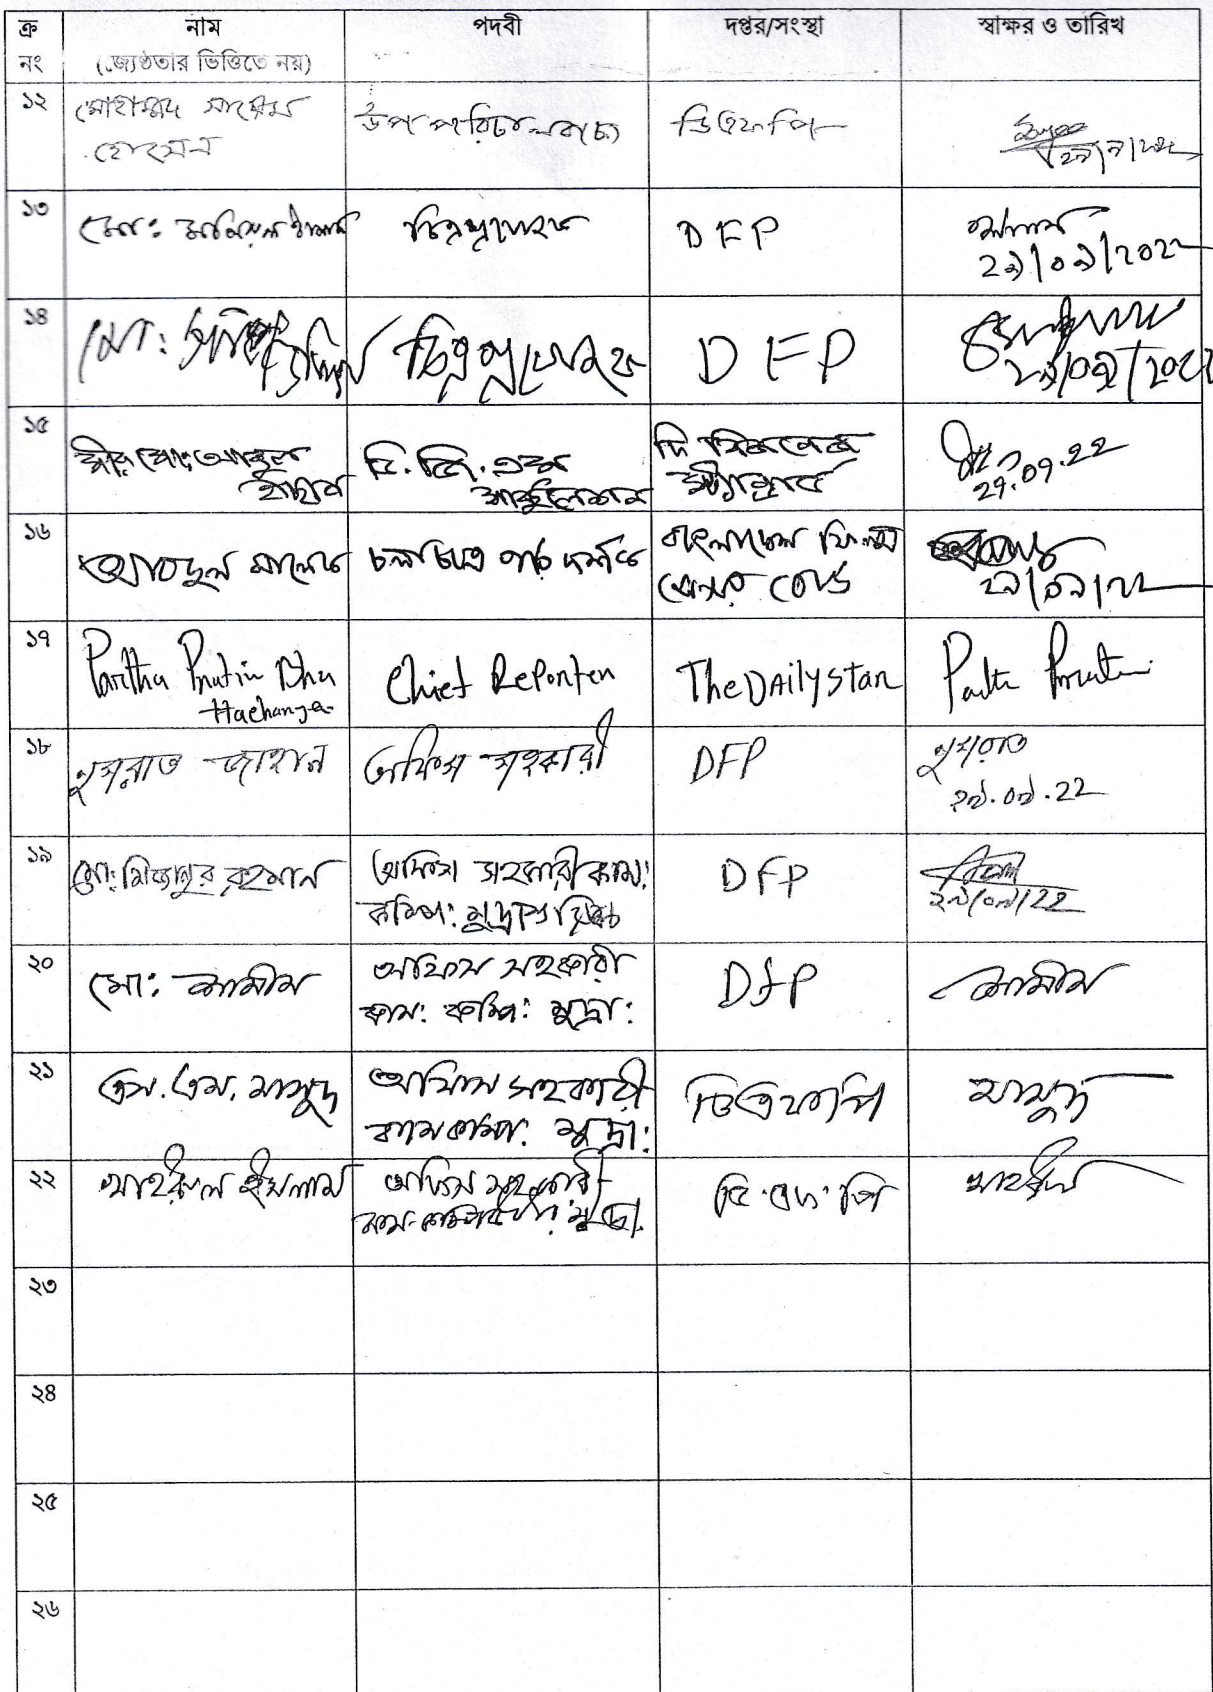 ক্র নং | নাম (জ্যেষ্ঠতার ভিত্তিতে নয়) | পদবী | দপ্তর/সংস্থা | স্বাক্ষর ও তারিখ
১২ | মোহাম্মদ সায়েম হোসেন | উপপরিচালক | ডিএফপি
১৩ | মো: ইসলাম | চিত্রগ্রাহক | DFP | ২৯/০৯/২০২২
১৪ | মো: | চিত্রগ্রাহক | DFP | ২৯/০৯/২০২২
১৫ | মীর মোঃ আবুল হাছান | ডি.জি.এম সার্কুলেশন | দি বিজনেস স্ট্যান্ডার্ড | 29.09.22
১৬ | আবদুল মালেক | চলচ্চিত্র পরিদর্শক | বাংলাদেশ ফিল্ম সেন্সর বোর্ড | ২৯/০৯/২২
১৭ | Partha Pratim Bhattacharjee | Chief Reporter | The DAily Star | Partha Pratim
১৮ | নুসরাত জাহান | অফিস সহকারী | DFP | নুসরাত ২৯.০৯.22
১৯ | মো: মিজানুর রহমান | অফিস সহকারী কাম: কম্পি: মুদ্রাক্ষরিক | DFP | ২৯/০৯/22
২০ | মো: শামীম | অফিস সহকারী কাম: কম্পি: মুদ্রা: | DFP | শামীম
২১ | এস.এম. মাসুদ | অফিস সহকারী কাম কম্পি: মুদ্রা: | ডিএফপি | মাসুদ
২২ | ইসলাম | অফিস সহকারী | ডি.এফ.পি
২৩
২৪
২৫
২৬